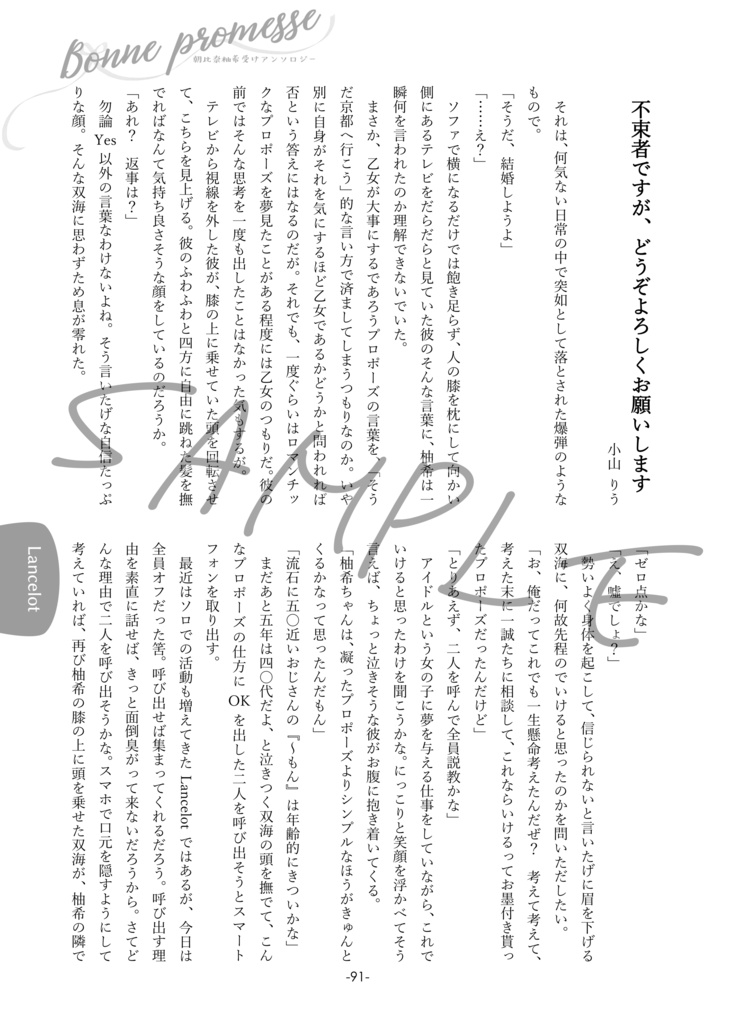 Bonne promesse
朝比奈柚希受けアンソロジー
不束者ですが、どうぞよろしくお願いします
小山 りう
それは、何気ない日常の中で突如として落とされた爆弾のような
もので。
「そうだ、結婚しようよ」
「……え？」
ソファで横になるだけでは飽き足らず、人の膝を枕にして向かい
側にあるテレビをだらだらと見ていた彼のそんな言葉に、柚希は一
瞬何を言われたのか理解できないでいた。
まさか、乙女が大事にするであろうプロポーズの言葉を、「そう
だ京都へ行こう」的な言い方で済ましてしまうつもりなのか。いや
別に自身がそれを気にするほど乙女であるかどうかと問われれば
否という答えにはなるのだが。それでも、一度ぐらいはロマンチッ
クなプロポーズを夢見たことがある程度には乙女のつもりだ。彼の
前ではそんな思考を一度も出したことはなかった気もするが。
テレビから視線を外した彼が、膝の上に乗せていた頭を回転させ
て、こちらを見上げる。彼のふわふわと四方に自由に跳ねた髪を撫
でればなんて気持ち良さそうな顔をしているのだろうか。
「あれ？　返事は？」
勿論 Yes 以外の言葉なわけないよね。そう言いたげな自信たっぷ
りな顔。そんな双海に思わずため息が零れた。
「ゼロ点かな」
「え、嘘でしょ？」
勢いよく身体を起こして、信じられないと言いたげに眉を下げる
双海に、何故先程のでいけると思ったのかを問いただしたい。
「お、俺だってこれでも一生懸命考えたんだぜ？　考えて考えて、
考えた末に一誠たちに相談して、これならいけるってお墨付き貰っ
たプロポーズだったんだけど」
「とりあえず、二人を呼んで全員説教かな」
アイドルという女の子に夢を与える仕事をしていながら、これで
いけると思ったわけを聞こうかな。にっこりと笑顔を浮かべてそう
言えば、ちょっと泣きそうな彼がお腹に抱き着いてくる。
「柚希ちゃんは、凝ったプロポーズよりシンプルなほうがきゅんと
くるかなって思ったんだもん」
「流石に五〇近いおじさんの『～もん』は年齢的にきついかな」
まだあと五年は四〇代だよ、と泣きつく双海の頭を撫でて、こん
なプロポーズの仕方に OK を出した二人を呼び出そうとスマート
フォンを取り出す。
最近はソロでの活動も増えてきた Lancelot ではあるが、今日は
全員オフだった筈。呼び出せば集まってくれるだろう。呼び出す理
由を素直に話せば、きっと面倒臭がって来ないだろうから。さてど
んな理由で二人を呼び出そうかな。スマホで口元を隠すようにして
考えていれば、再び柚希の膝の上に頭を乗せた双海が、柚希の隣で
Lancelot
SAMPLE
-91-